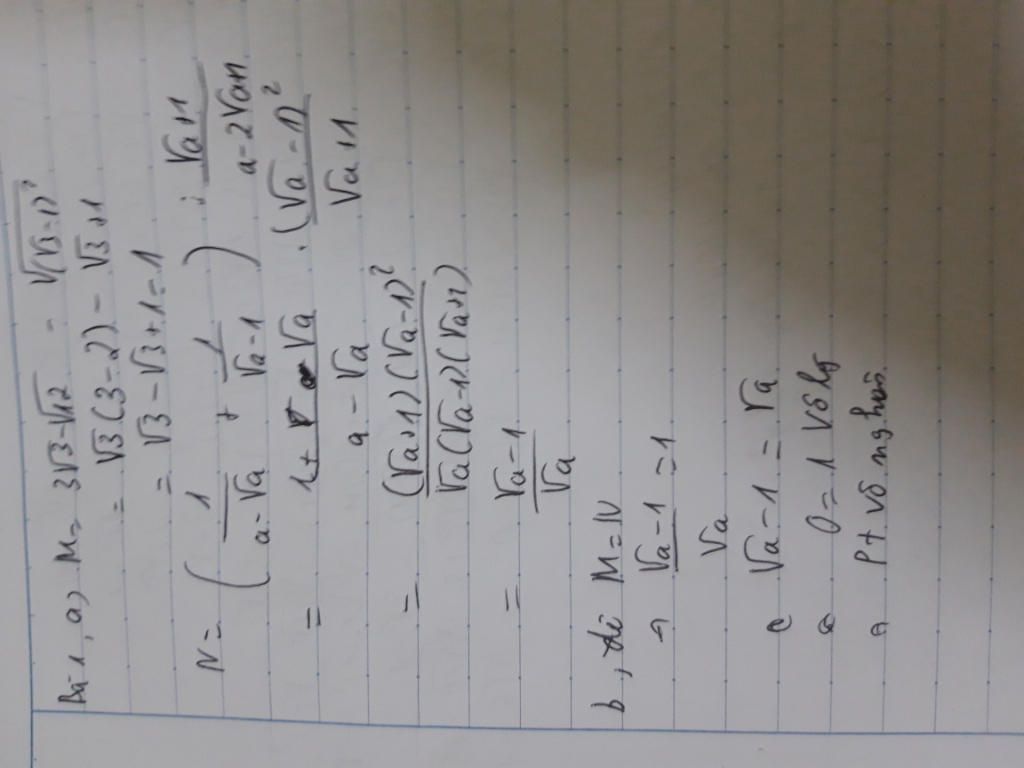 Bài 1, a, M = 3√3 - √12 - √(√3-1)²
= √3(3-2) - √3+1
= √3 - √3 + 1 = 1
N = ( 1/(a-√a) + 1/(√a-1) ) : (√a+1)/(a-2√a+1)
= (1+√a)/(a-√a) . (√a-1)²/(√a+1)
= (√a+1)(√a-1)²/(√a(√a-1)(√a+1))
= (√a-1)/√a
b, để M = N
(√a-1)/√a = 1
√a - 1 = √a
0 = 1 vô lý
Pt vô nghiệm